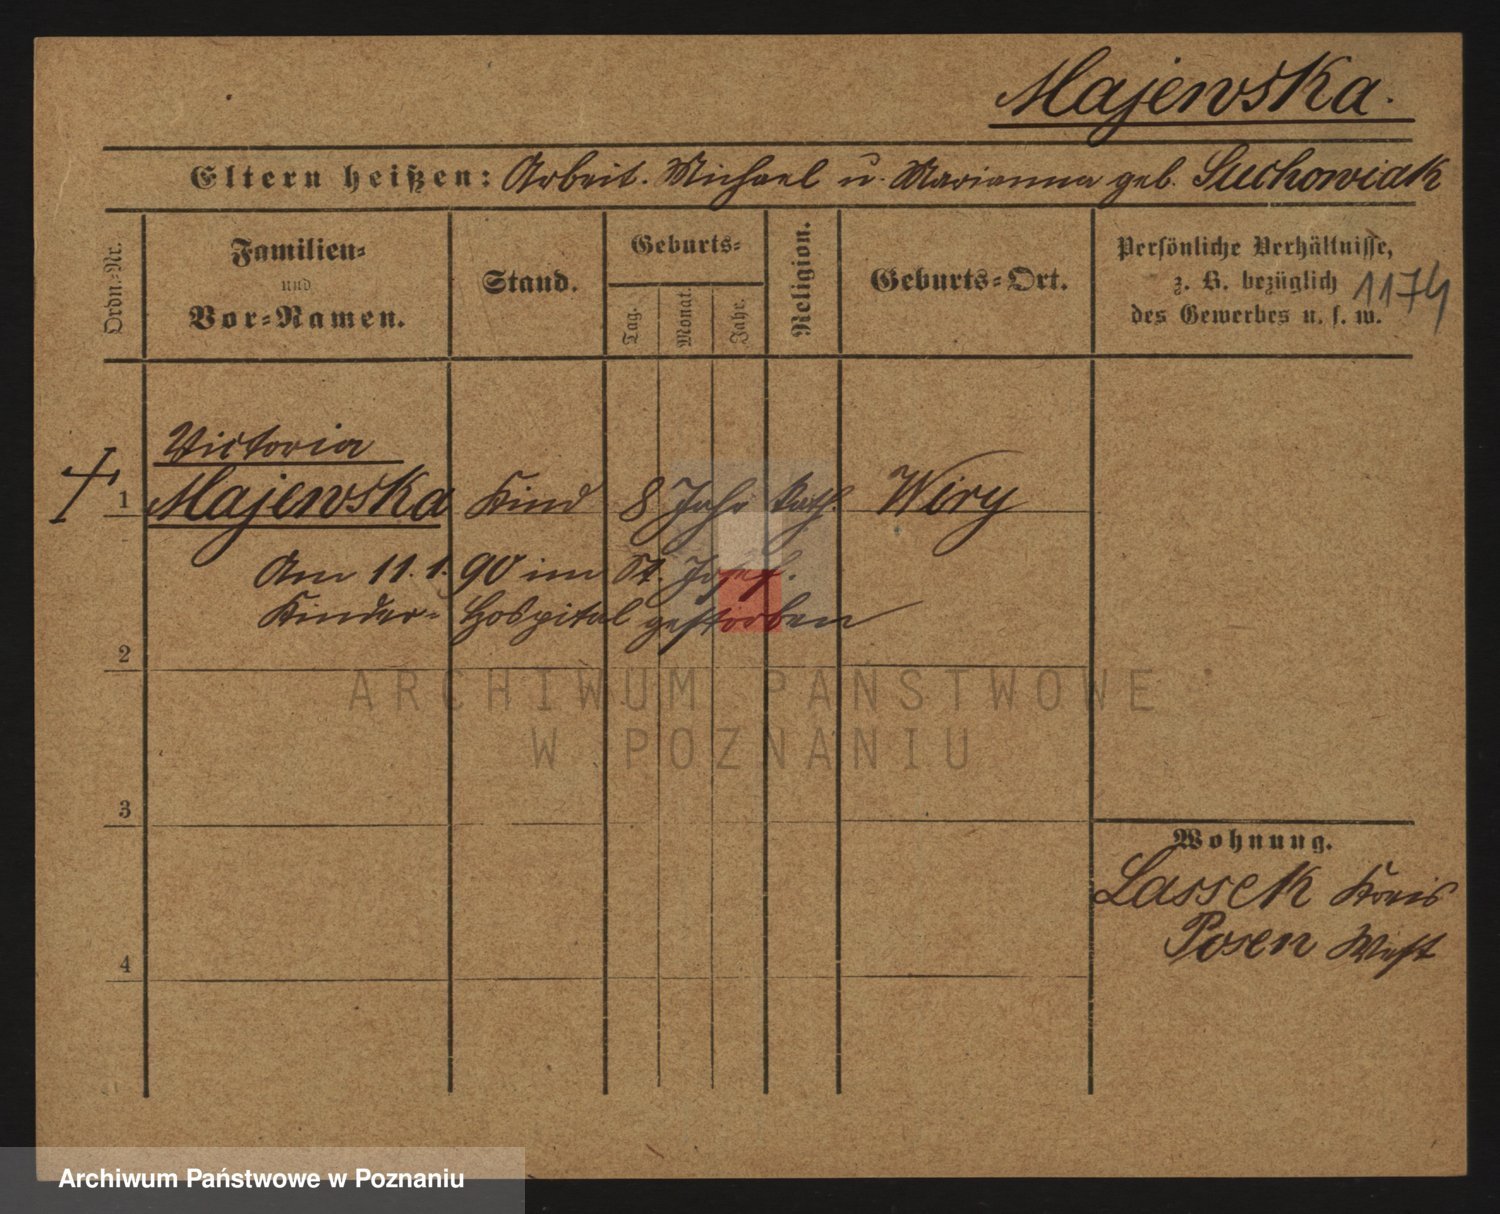 Majewska.
Eltern heißen: Arbeit. Michael u. Marianna geb. Suchowiak
Ordn.-Nr.
Familien-
und
Vor-Namen.
Stand.
Geburts-
Tag.
Monat.
Jahr.
Religion.
Geburts-Ort.
Persönliche Verhältnisse,
z. B. bezüglich
des Gewerbes u. s. w.
1174
Victoria
1 Majewska Kind 8 Jahr Kath. Wiry
Am 11.1.90 im St. Josef.
Kinder-Hospital gestorben
2
ARCHIWUM PAŃSTWOWE
W POZNANIU
3
Wohnung.
Lassek Kreis
Posen West
4
Archiwum Państwowe w Poznaniu